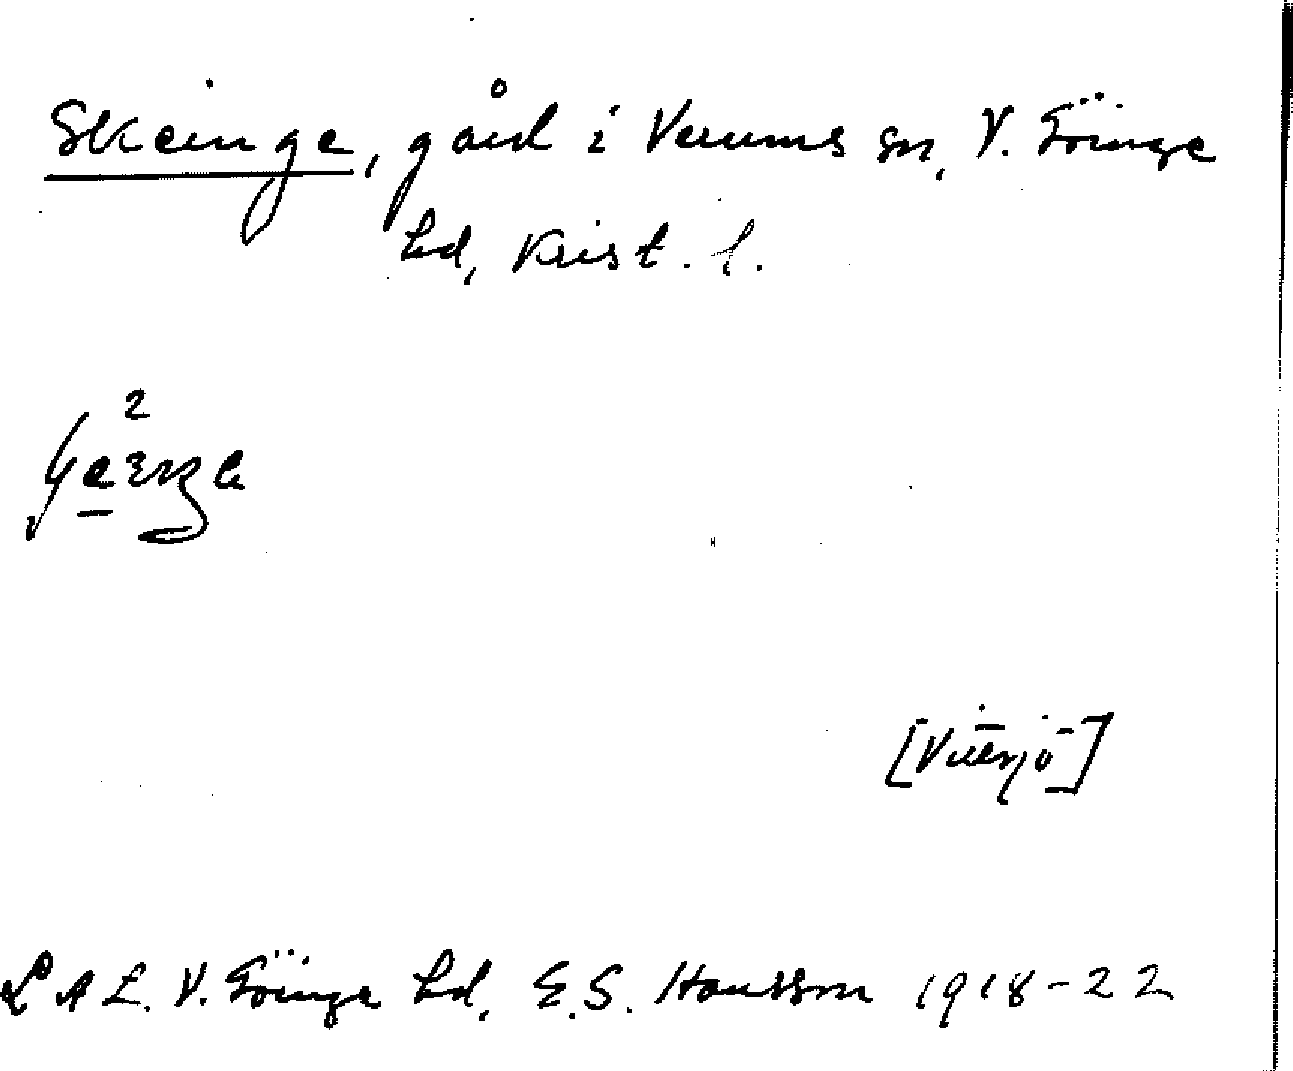 Skeinge, gård i Verums sn, V. Göinge
hd, Krist. l.
LAL. V. Göinge hd, E.S. Hansson 1918-22